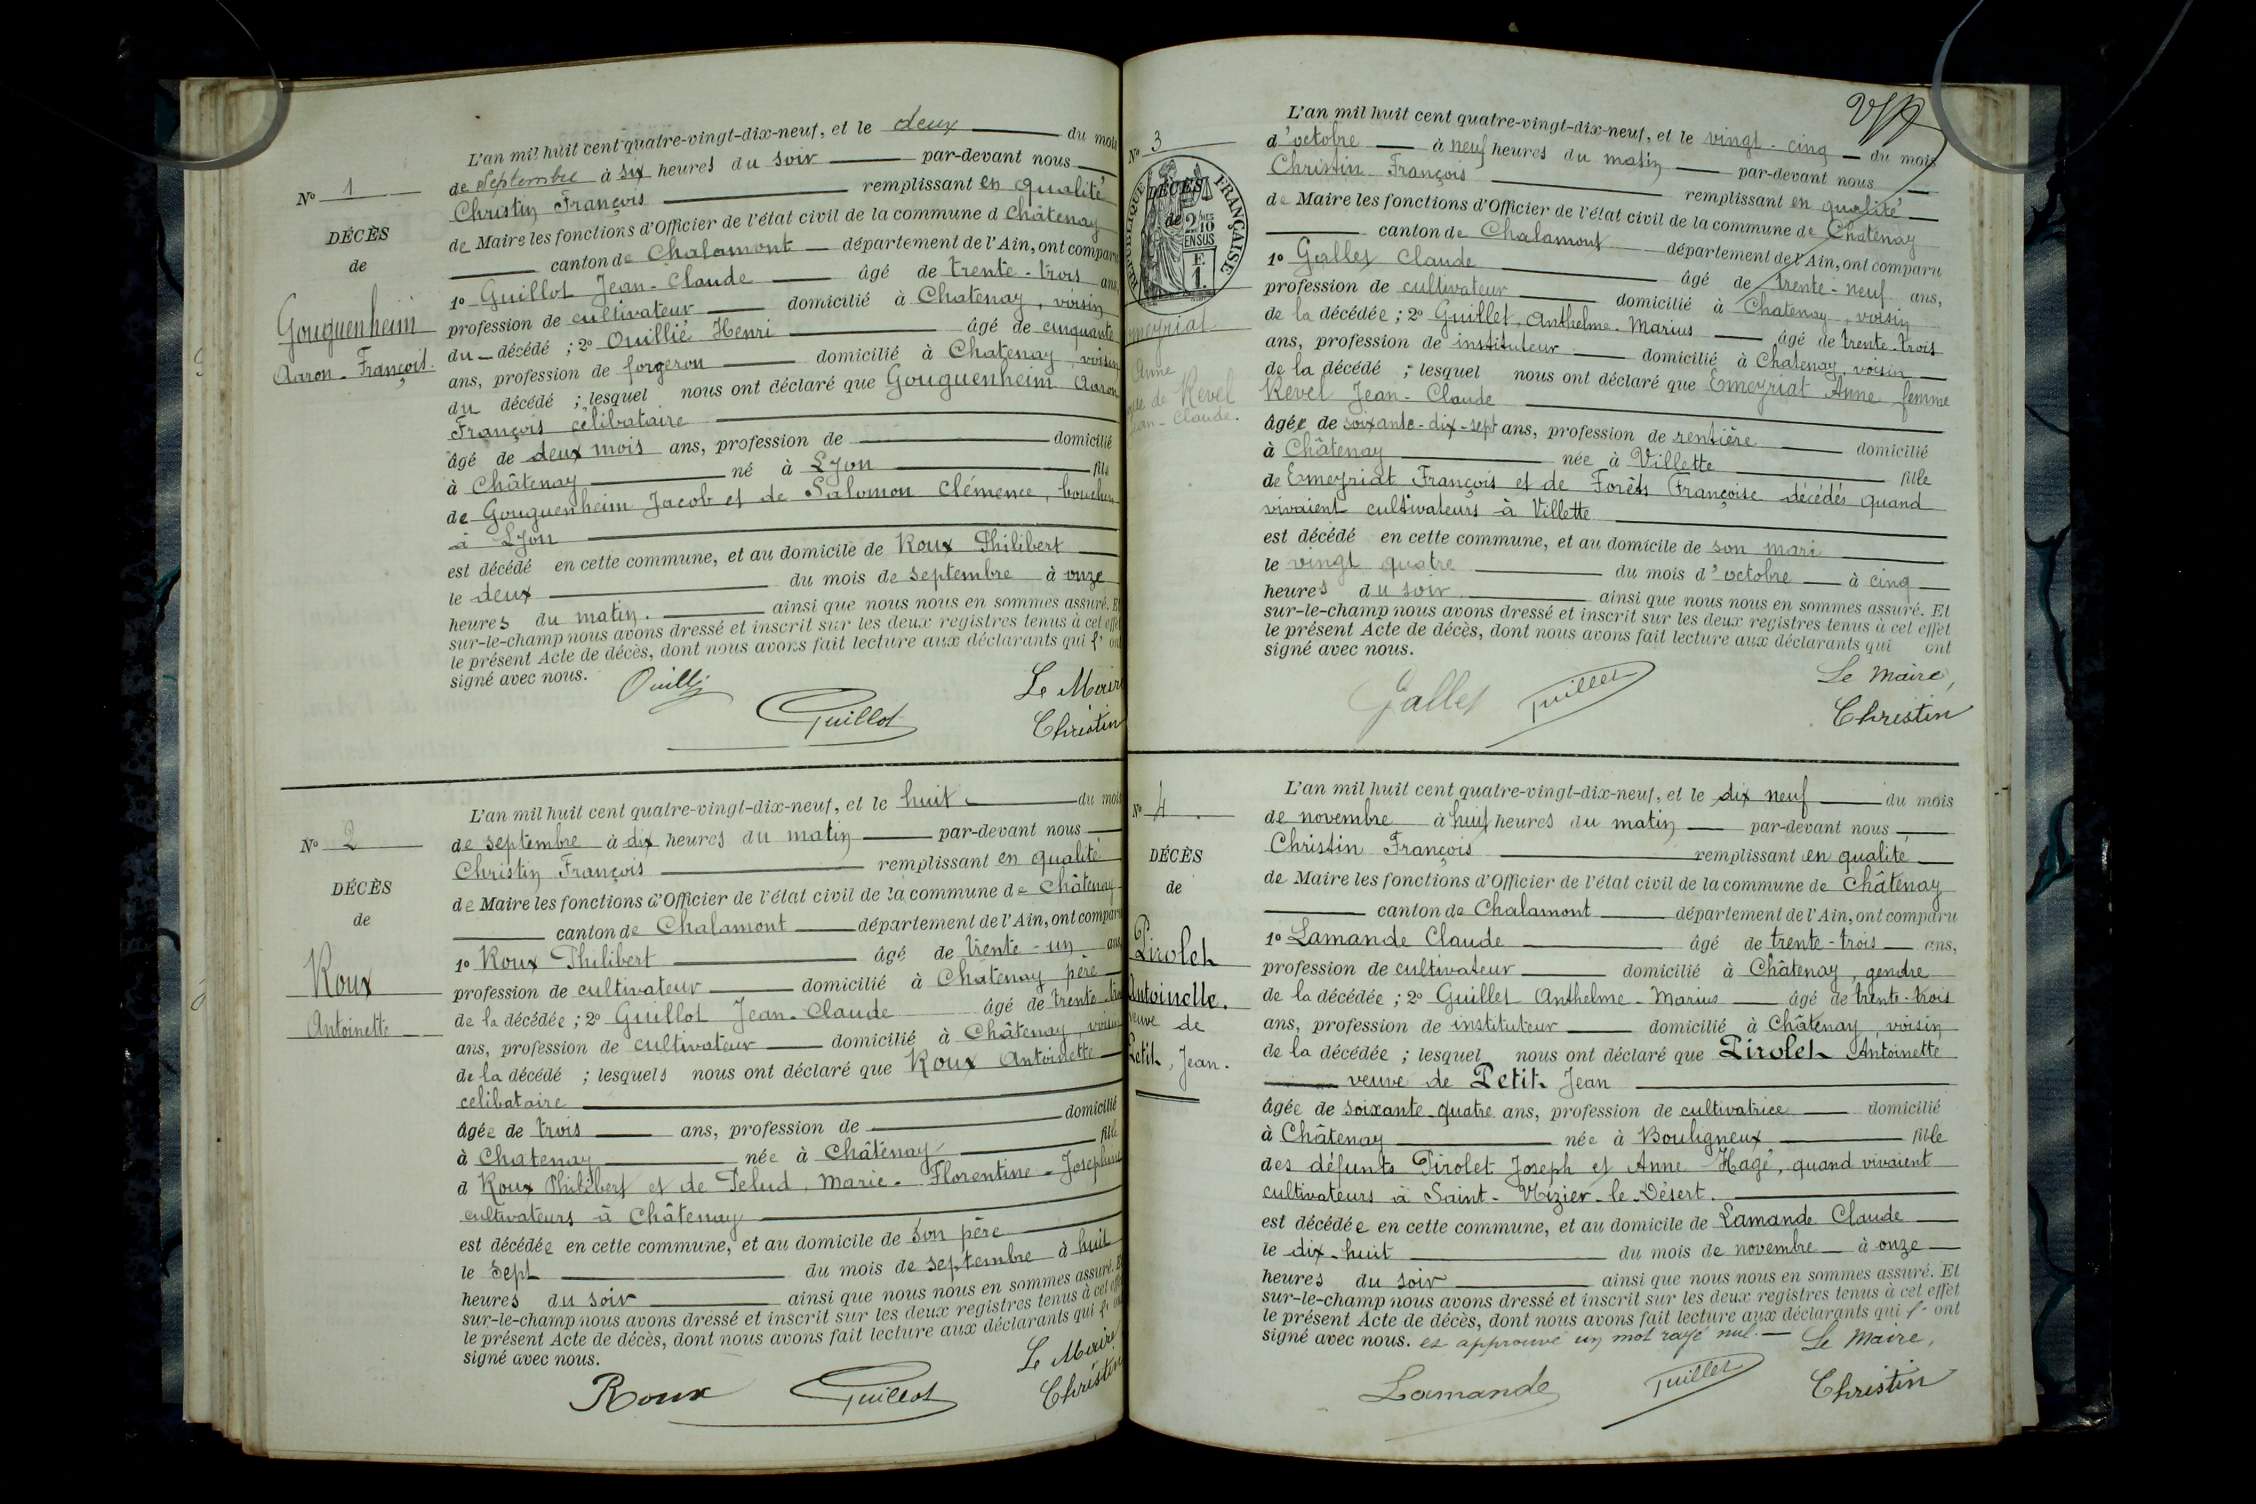 N° 1
DÉCÈS
de
Gouguenheim
Aaron-François.
L'an mil huit cent quatre-vingt-dix-neuf, et le deux du mois
de Septembre à six heures du soir par-devant nous
Christin François remplissant en qualité
de Maire les fonctions d'Officier de l'état civil de la commune d Châtenay
canton de Chalamont département de l'Ain, ont comparu
1° Guillot Jean-Claude âgé de trente-trois ans,
profession de cultivateur domicilié à Chatenay, voisin
du décédé ; 2° Ouillié Henri âgé de cinquante
ans, profession de forgeron domicilié à Chatenay voisin
du décédé ; lesquel nous ont déclaré que Gouguenheim Aaron
François célibataire
âgé de deux mois ans, profession de domicilié
à Châtenay né à Lyon fils
de Gouguenheim Jacob et de Salomon Clémence, bouchers
à Lyon
est décédé en cette commune, et au domicile de Roux Philibert
le deux du mois de septembre à onze
heures du matin. ainsi que nous nous en sommes assuré. Et
sur-le-champ nous avons dressé et inscrit sur les deux registres tenus à cet effet
le présent Acte de décès, dont nous avons fait lecture aux déclarants qui l' ont
signé avec nous.
Le Maire
Guillot
Christin
N° 2
DÉCÈS
de
Roux
Antoinette
L'an mil huit cent quatre-vingt-dix-neuf, et le huit du mois
de septembre à dix heures du matin par-devant nous
Christin François remplissant en qualité
de Maire les fonctions d'Officier de l'état civil de la commune de Châtenay
canton de Chalamont département de l'Ain, ont comparu
1° Roux Philibert âgé de trente-un ans
profession de cultivateur domicilié à Châtenay père
de la décédée ; 2° Guillot Jean-Claude âgé de trente-trois
ans, profession de cultivateur domicilié à Châtenay, voisin
de la décédé ; lesquels nous ont déclaré que Roux Antoinette
celibataire
âgée de trois ans, profession de domicilié
à Chatenay née à Châtenay fille
d Roux Philibert et de Pelud, Marie-Florentine-Josephine
cultivateurs à Châtenay
est décédée en cette commune, et au domicile de son père
le sept du mois de septembre à huit
heures du soir ainsi que nous nous en sommes assuré. Et
sur-le-champ nous avons dressé et inscrit sur les deux registres tenus à cet effet
le présent Acte de décès, dont nous avons fait lecture aux déclarants qui l' ont
signé avec nous.
Le Maire
Roux Guillot Christin
N° 3
DÉCÈS
de
RÉPUBLIQUE FRANÇAISE
2/10 EN SUS
E.
1.
meyriat
Anne
de Revel
Jean-Claude.
L'an mil huit cent quatre-vingt-dix-neuf, et le vingt-cinq du mois
d'octobre à neuf heures du matin par-devant nous
Christin François remplissant en qualité
de Maire les fonctions d'Officier de l'état civil de la commune de Chatenay
canton de Chalamont département de l'Ain, ont comparu
1° Gallet Claude âgé de trente-neuf ans,
profession de cultivateur domicilié à Chatenay, voisin
de la décédée ; 2° Guillet, Anthelme-Marius âgé de trente-trois
ans, profession de instituteur domicilié à Châtenay, voisin
de la décédé ; lesquel nous ont déclaré que Emeyriat Anne femme
Revel Jean-Claude
âgée de soixante-dix-sept ans, profession de rentière domicilié
à Châtenay née à Villette fille
de Emeyriat François et de Forêts Françoise décédés quand
vivaient cultivateurs à Villette
est décédé en cette commune, et au domicile de son mari
le vingt quatre du mois d'octobre à cinq
heures du soir. ainsi que nous nous en sommes assuré. Et
sur-le-champ nous avons dressé et inscrit sur les deux registres tenus à cet effet
le présent Acte de décès, dont nous avons fait lecture aux déclarants qui ont
signé avec nous.
Le Maire,
Gallet Guillet Christin
N° 4.
DÉCÈS
de
Pirolet
Antoinette.
veuve de
Petit, Jean.
L'an mil huit cent quatre-vingt-dix-neuf, et le dix neuf du mois
de novembre à huit heures du matin par-devant nous
Christin François remplissant en qualité
de Maire les fonctions d'Officier de l'état civil de la commune de Châtenay
canton de Chalamont département de l'Ain, ont comparu
1° Lamande Claude âgé de trente-trois ans,
profession de cultivateur domicilié à Châtenay, gendre
de la décédée ; 2° Guillet Anthelme-Marius âgé de trente-trois
ans, profession de instituteur domicilié à Châtenay, voisin
de la décédée ; lesquel nous ont déclaré que Pirolet Antoinette
veuve de Petit Jean
âgée de soixante-quatre ans, profession de cultivatrice domicilié
à Châtenay née à Bouligneux fille
des défunts Pirolet Joseph et Anne Hagé, quand vivaient
cultivateurs à Saint-Nizier-le-Désert.
est décédée en cette commune, et au domicile de Lamande Claude
le dix-huit du mois de novembre à onze
heures du soir ainsi que nous nous en sommes assuré. Et
sur-le-champ nous avons dressé et inscrit sur les deux registres tenus à cet effet
le présent Acte de décès, dont nous avons fait lecture aux déclarants qui l' ont
signé avec nous. et approuvé un mot rayé nul. Le Maire,
Lamande Guillet Christin